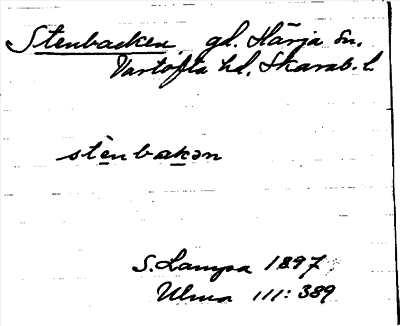 Stenbacken, gd. Härja sn.
Vartofta hd. Skarab. l.
stènbakən
S. Lampa 1897
Ulma 111: 389